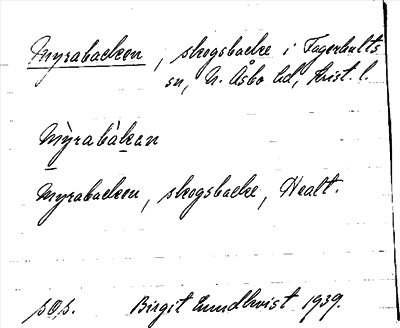 Myrabacken, skogsbacke i Fagerhults
sn, N. Åsbo hd, Krist. l.
Mỳrabàkan
Myrabacken, skogsbacke, Healt.
sOs. Birgit Lundkvist 1939.